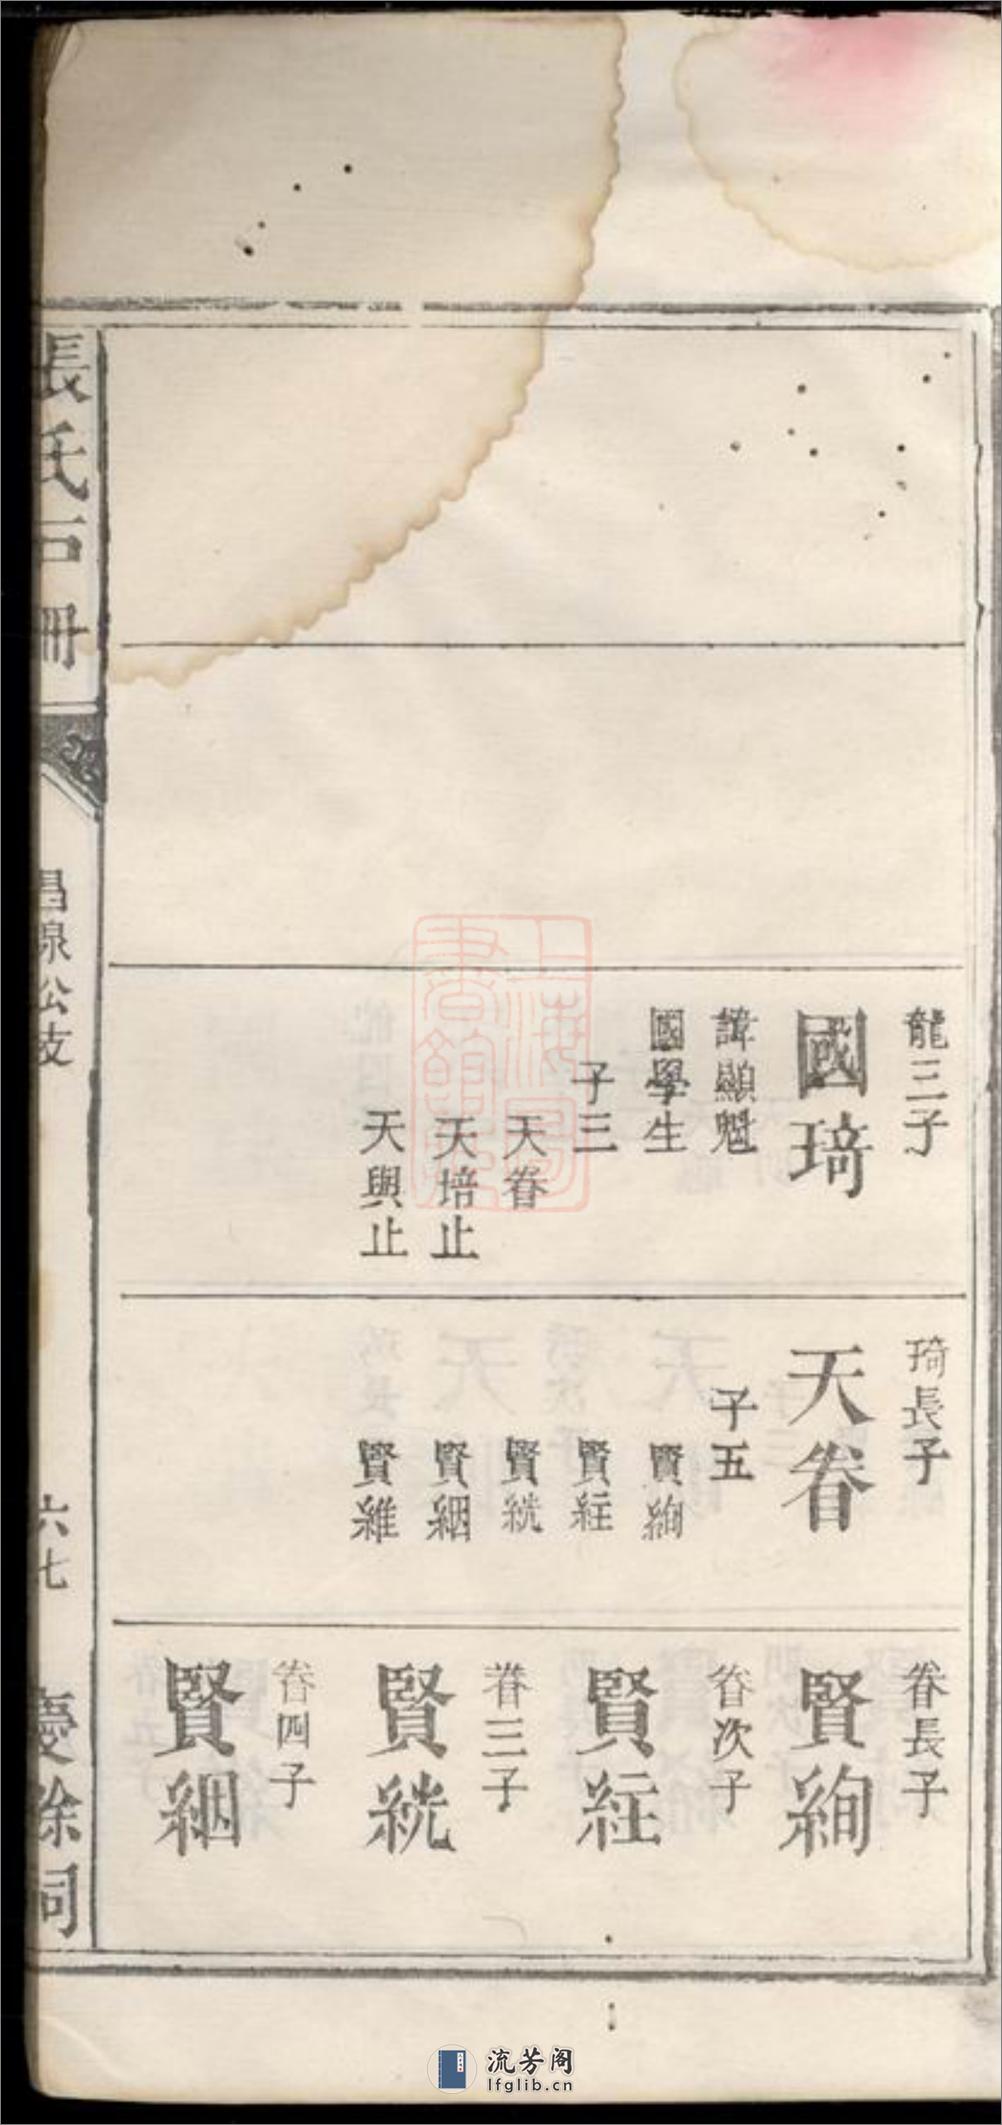 龍三子
國琦
諱顯魁
國學生
子三
天眷
天培止
天與止
琦長子
天眷
子五
賢絢
賢紝
賢絖
賢絪
賢維
眷長子
賢絢
眷次子
賢紝
眷三子
賢絖
眷四子
賢絪
張氏
冊
昌泉公支
六七
慶餘祠
上海圖書館藏
流芳阁
lfglib.cn